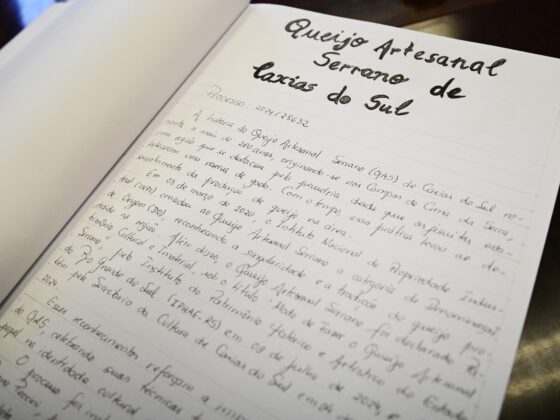 Queijo Artesanal
Serrano de
Caxias do Sul
Processo: 2024/25632
A história do Queijo Artesanal Serrano (QAS) de Caxias do Sul re-
monta a mais de 200 anos, originando-se nos Campos de Cima da Serra,
uma região que se destacou pela pecuária desde que os jesuítas esta-
beleceram uma reserva de gado. Com o tempo, essa prática levou ao de-
senvolvimento da produção de queijo na área.
Em 03 de março de 2020, o Instituto Nacional da Propriedade Indus-
trial (INPI) concedeu ao Queijo Artesanal Serrano a categoria de Denominação
de Origem (DO), reconhecendo a singularidade e a tradição do queijo pro-
duzido na região. Além disso, o Queijo Artesanal Serrano foi declarado Pa-
trimônio Cultural e Imaterial, sob o título "Modo de Fazer o Queijo Artesanal
Serrano", pelo Instituto do Patrimônio Histórico e Artístico do Estado
do Rio Grande do Sul (IPHAE-RS) em 09 de julho de 2024 e
pela Secretaria da Cultura de Caxias do Sul em
2024.
Esses reconhecimentos reforçam a
do QAS, celebrando suas técnicas
papel na identidade cultural
O processo foi